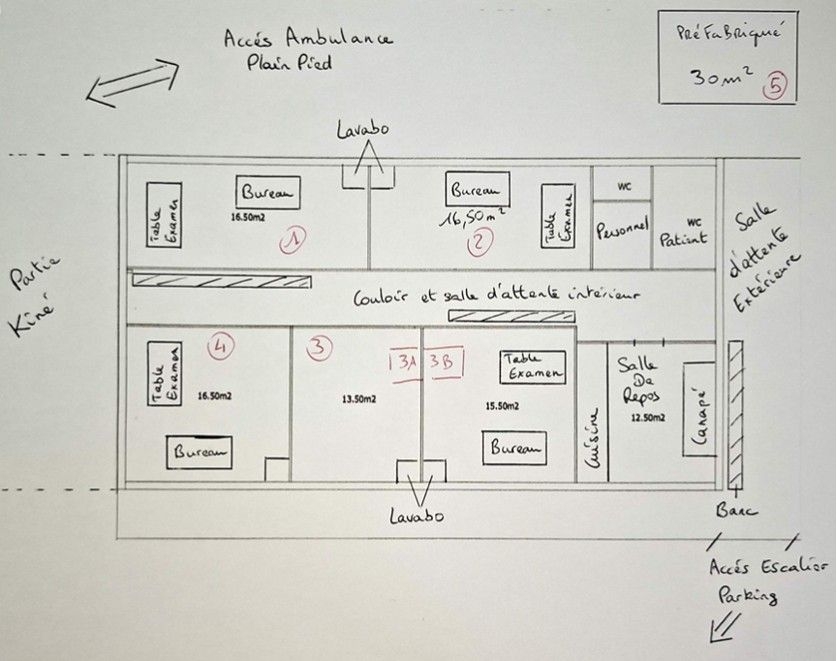 Accés Ambulance
Plain Pied
PRéFaBRiqué
30m²
5
Lavabo
Table
Examen
Bureau
16.50m2
1
Bureau
16,50m²
2
Table
Examen
WC
Personnel
WC
Patient
Salle
d'attente
Extérieure
Partie
Kiné
Couloir et salle d'attente intérieur
Table
Examen
4
16.50m2
Bureau
3
13.50m2
3A
3B
Table
Examen
15.50m2
Bureau
Cuisine
Salle
De
Repos
12.50m2
Canapé
Lavabo
Banc
Accés Escalier
Parking